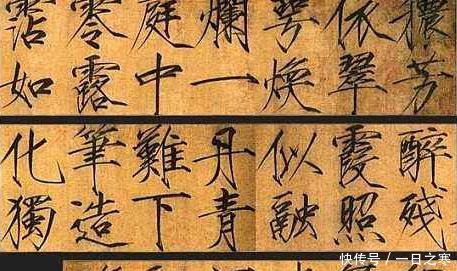 穠芳
依翠
萼煥
爛一
庭中
零露
霑如
醉殘
霞照
似融
丹青
難下
筆造
化獨
快传号/一日之寒